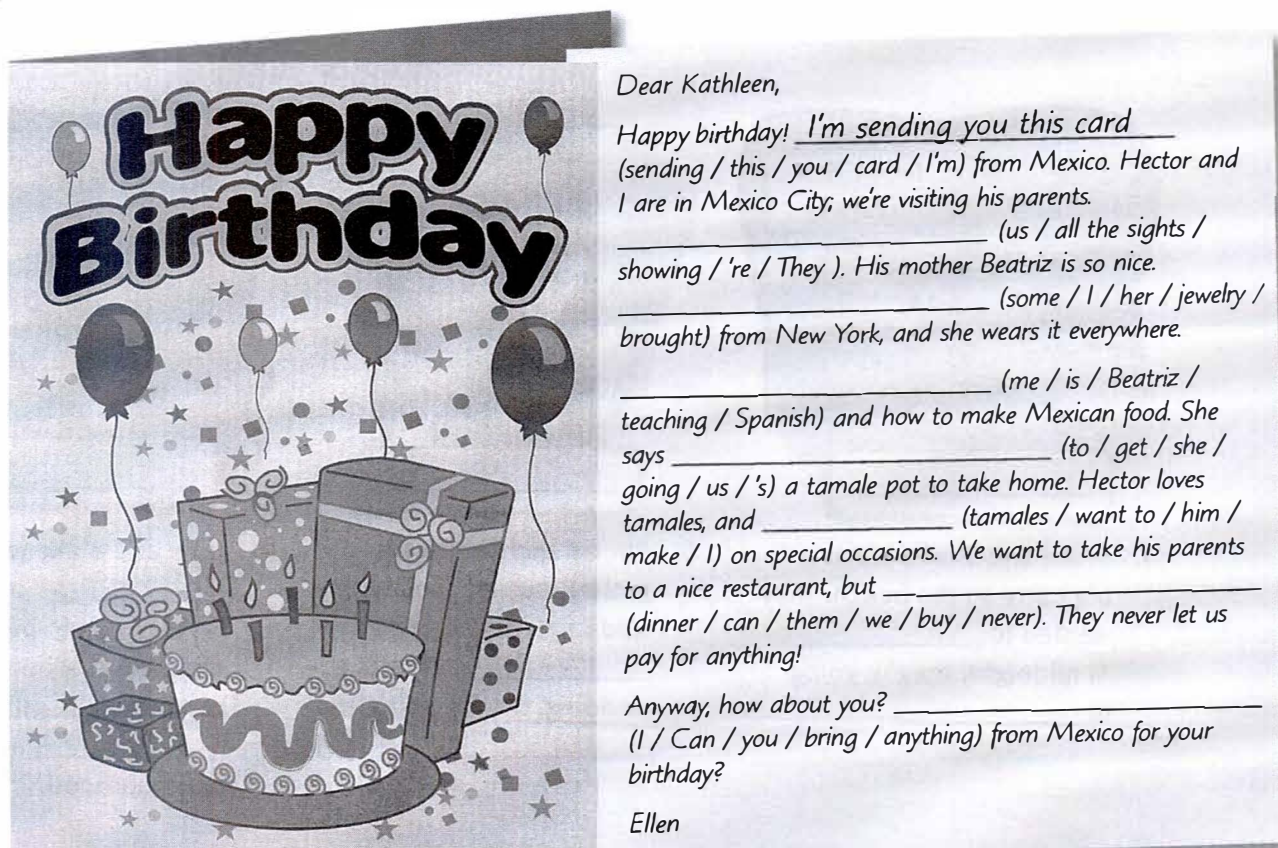 Happy
Birthday
Dear Kathleen,
Happy birthday! I'm sending you this card
(sending / this / you / card / I'm) from Mexico. Hector and
I are in Mexico City; we're visiting his parents.
____________________ (us / all the sights /
showing / 're / They ). His mother Beatriz is so nice.
____________________ (some / I / her / jewelry /
brought) from New York, and she wears it everywhere.
____________________ (me / is / Beatriz /
teaching / Spanish) and how to make Mexican food. She
says ____________________ (to / get / she /
going / us / 's) a tamale pot to take home. Hector loves
tamales, and ____________________ (tamales / want to / him /
make / I) on special occasions. We want to take his parents
to a nice restaurant, but ____________________
(dinner / can / them / we / buy / never). They never let us
pay for anything!
Anyway, how about you? ____________________
(I / Can / you / bring / anything) from Mexico for your
birthday?
Ellen